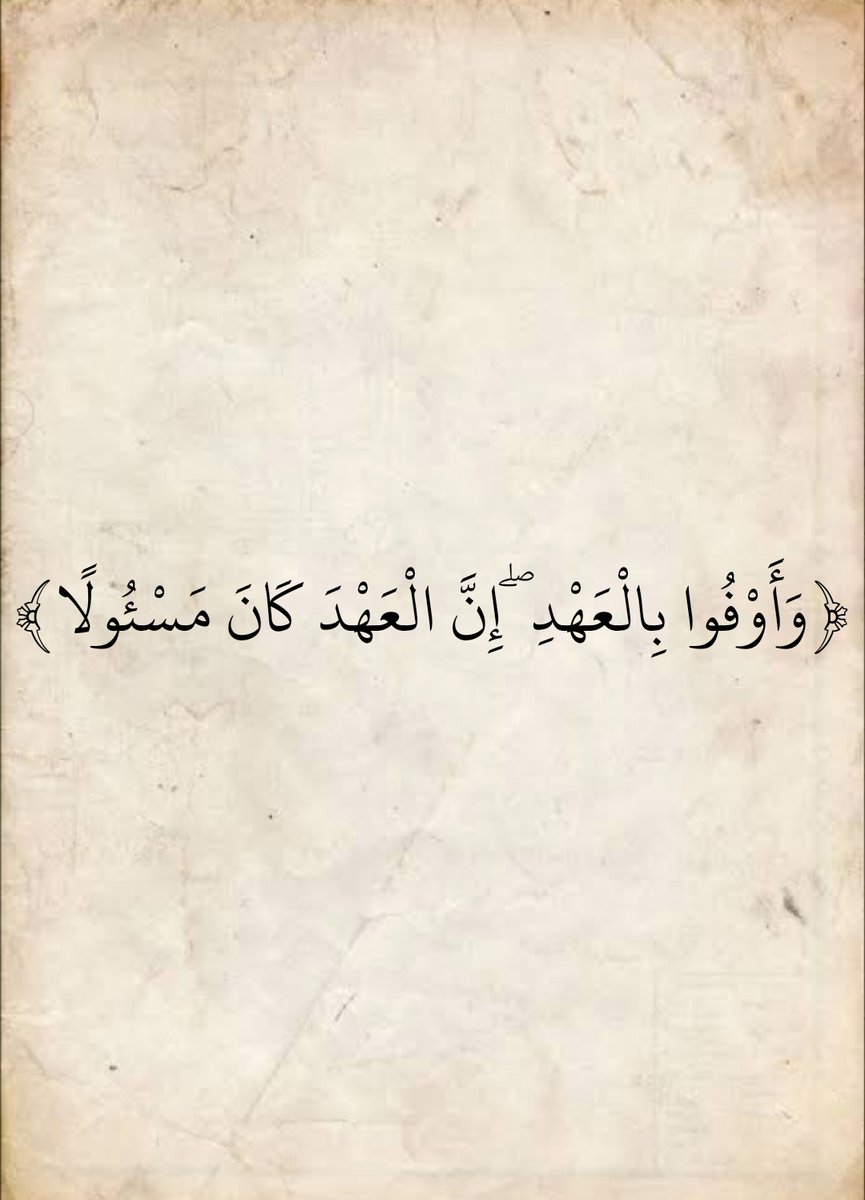 ﴿وَأَوْفُوا بِالْعَهْدِ ۖ إِنَّ الْعَهْدَ كَانَ مَسْئُولًا﴾